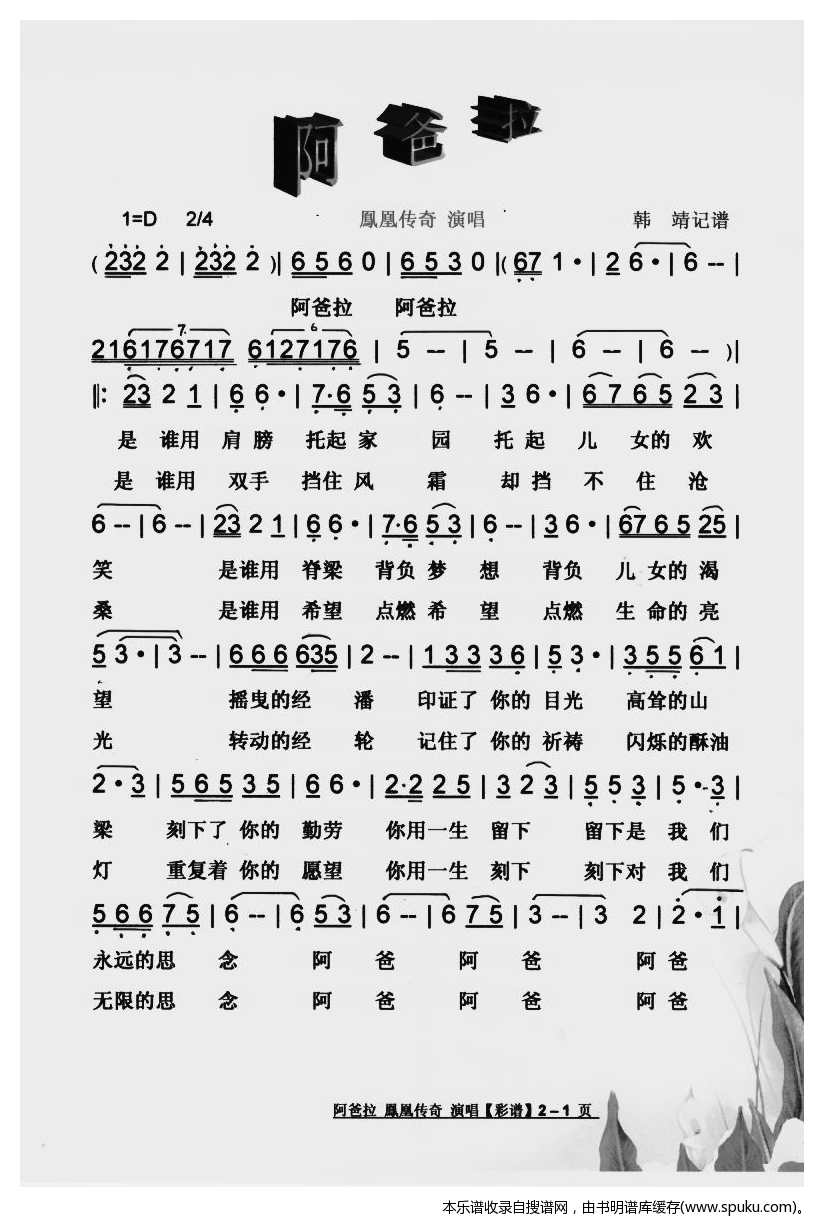 阿爸拉
1=D 2/4 鳳凰传奇 演唱 韩 靖记谱
( 232 2 | 232 2 )| 6 5 6 0 | 6 5 3 0 |( 67 1 • | 2 6 • | 6 -- |
阿爸拉 阿爸拉
216176717 6127176 | 5 -- | 5 -- | 6 -- | 6 -- )|
||: 23 2 1 | 6 6 • | 7·6 5 3 | 6 -- | 3 6 • | 6 7 6 5 2 3 |
是 谁用 肩 膀 托起 家 园 托 起 儿 女的 欢
是 谁用 双手 挡住 风 霜 却 挡 不 住 沧
6 -- | 6 -- | 23 2 1 | 6 6 • | 7·6 5 3 | 6 -- | 3 6 • | 67 6 5 25 |
笑 是谁用 脊梁 背负 梦 想 背负 儿 女的 渴
桑 是谁用 希望 点燃 希 望 点燃 生 命的 亮
5 3 • | 3 -- | 6 6 6 635 | 2 -- | 1 3 3 3 6 | 5 3 • | 3 5 5 6 1 |
望 摇曳的经 潘 印证了 你的 目光 高耸的山
光 转动的经 轮 记住了 你的 祈祷 闪烁的酥油
2 • 3 | 5 6 5 3 5 | 6 6 • | 2·2 2 5 | 3 2 3 | 5 5 3 | 5 • 3 |
梁 刻下了 你的 勤劳 你用一生 留下 留下是 我 们
灯 重复着 你的 愿望 你用一生 刻下 刻下对 我 们
5 6 6 7 5 | 6 -- | 6 5 3 | 6 -- | 6 7 5 | 3 -- | 3 2 | 2 • 1 |
永远的思 念 阿 爸 阿 爸 阿 爸
无限的思 念 阿 爸 阿 爸 阿 爸
阿爸拉 鳳凰传奇 演唱【彩谱】2－1 页
本乐谱收录自搜谱网，由书明谱库缓存(www.spuku.com)。